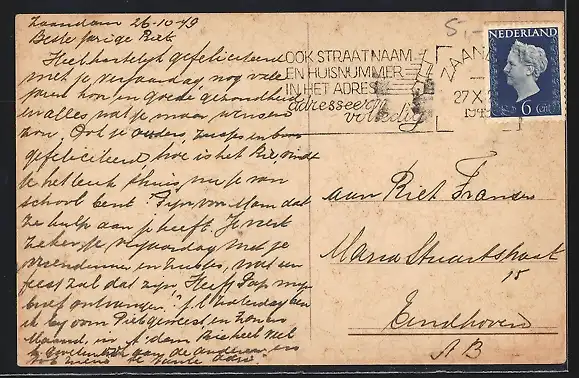 Zaandam 26-10-49
Beste jarige Riet
Heel hartelijk gefeliciteerd
met je verjaardag nog vele
jaren hoor in goede gezondheid
en alles wat je maar wensen
kan. Ook je ouders, zusjes en broer
gefeliciteerd, hoe is het Rie, vindt
je het leuk thuis, nu je van
school bent. Fijn voor Mam dat
ze hulp aan je heeft. Je viert
zeker je verjaardag met je
vriendinnen en zusjes, wat een
feest zal dat zijn. Heeft Pap mijn
brief ontvangen? j.l. Zaterdag ben
ik bij oom Piet geweest en
Maandag in A'dam Rie heel veel
de anderen
tante
OOK STRAATNAAM
EN HUISNUMMER
IN HET ADRES
adresseer
volledig
ZAAN
27 X
194
NEDERLAND
6 CENT
5.-
aan Riet Fransen
Maria Stuartstraat
15
Eindhoven
AB